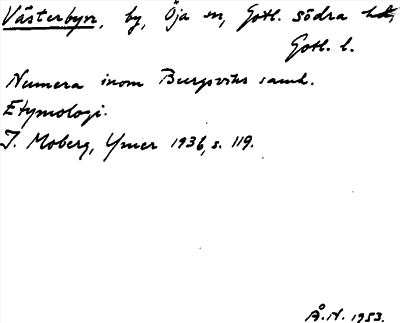 Västerbyn, by, Öja sn, Gotl. södra hd,
Gotl. l.
Numera inom Burgsviks samh.
Etymologi.
I. Moberg, Ymer 1936, s. 119.
Å.N. 1953.